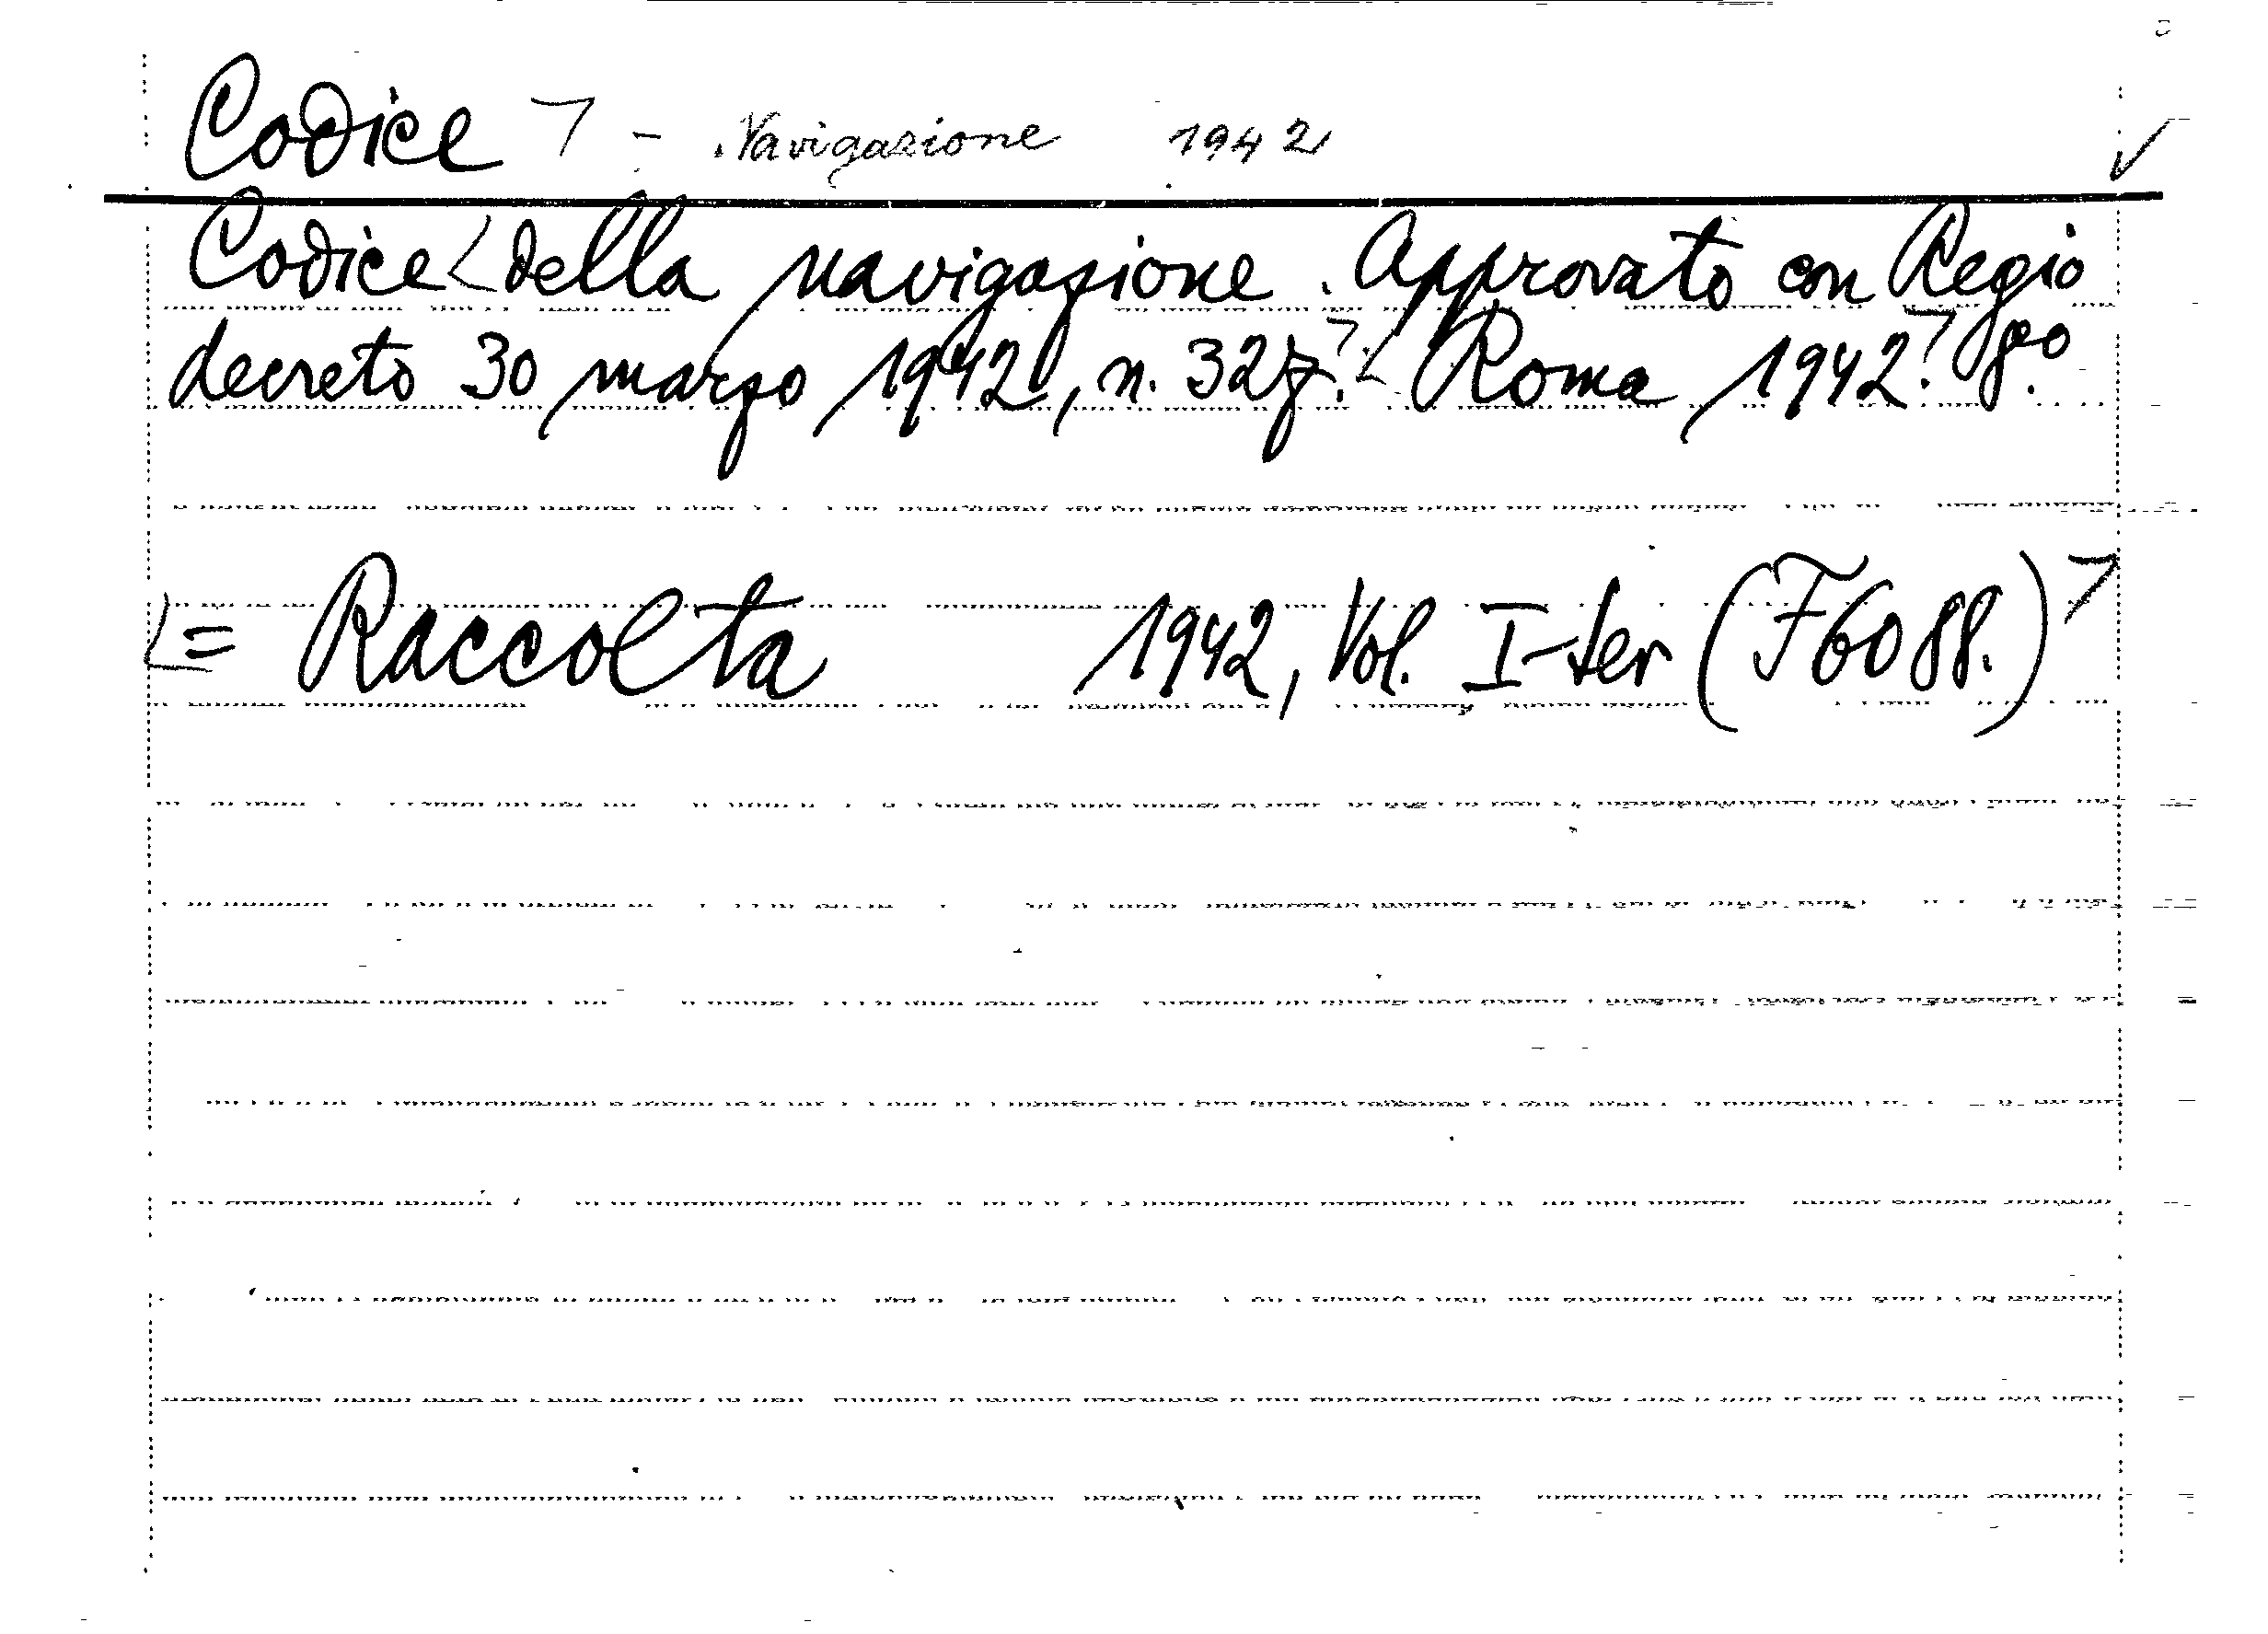 Codice - Navigazione 1942
Codice della navigazione. Approvato con Regio
decreto 30 marzo 1942, n. 327. Roma, 1942. 8º.
= Raccolta 1942, Vol. I-ter (F6088.)